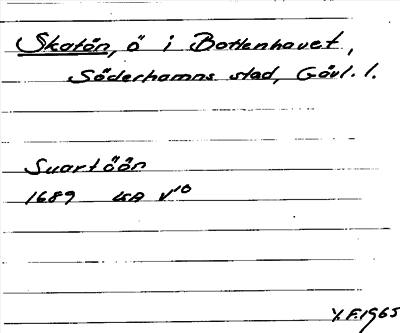 Skatön, ö i Bottenhavet,
Söderhamns stad, Gävl. l.
Svartöön
1689 LSA V10
Y.F.1965